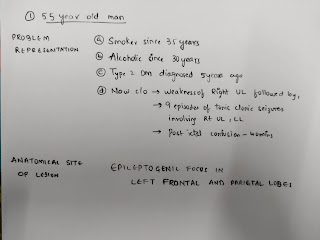 ① 55 year old man
PROBLEM
REPRESENTATION
ⓐ Smoker since 35 years
ⓑ Alcoholic since 30 years
ⓒ Type 2 DM diagnosed 5 years ago
ⓓ Now c/o → weakness of Right UL followed by,
→ 9 episodes of tonic clonic seizures
involving Rt UL, LL
→ post ictal confusion -
ANATOMICAL SITE
OF LESION
EPILEPTOGENIC FOCUS IN
LEFT FRONTAL AND PARIETAL LOBES